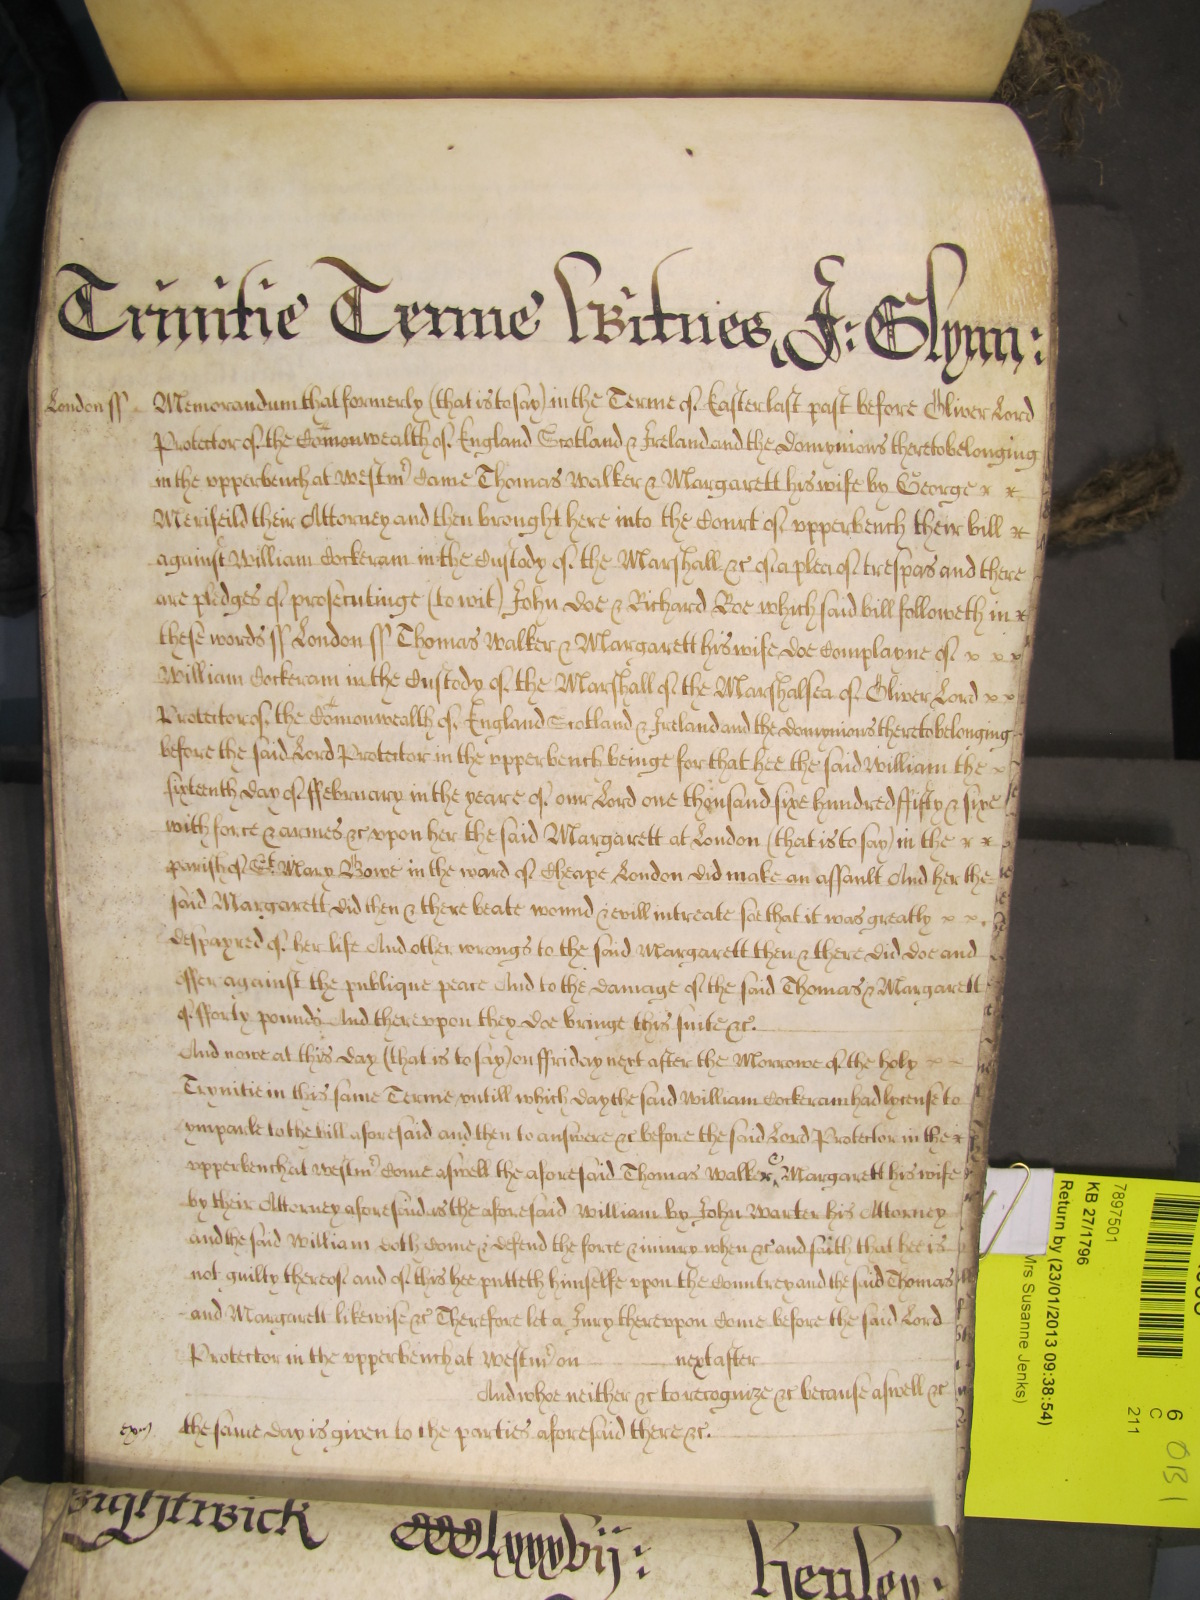 Trinitie Terme Witnes J: Glynn:
London ss Memorandum that formerly (that is to say) in the Terme of Easter last past before Oliver Lord
Protector of the Comonwealth of England Scotland & Ireland and the domynions thereto belonging
in the upperbench at Westmr came Thomas Walker & Margarett his wife by George x x
Merifeild their Attorney and then brought here into the Court of upperbench their bill x
against William Cockeram in the Custody of the Marshall &c of a plea of trespas and there
are pledges of prosecutinge (to wit) John Doe & Richard Roe which said bill followeth in x
these words ss London ss Thomas Walker & Margarett his wife doe Complayne of x x x
William Cockeram in the Custody of the Marshall of the Marshalsea of Oliver Lord x x
Protector of the Comonwealth of England Scotland & Ireland and the domynions thereto belonging
before the said Lord Protector in the upperbench beinge for that hee the said William the x
sixteenth day of ffebruary in the yeare of our Lord one thousand sixe hundred ffifty & sixe
with force & armes &c upon her the said Margarett at London (that is to say) in the x x
parish of St Mary Bowe in the ward of Cheape London did make an assault And her the
said Margarett did then & there beate wound & evill intreate soe that it was greatly x x
despayred of her life And other wrongs to the said Margarett then & there did doe and
offer against the publique peace And to the damage of the said Thomas & Margarett
of fforty pounds And thereupon they doe bringe this suite &c.
And nowe at this day (that is to say) on ffriday next after the Morrowe of the holy x x
Trynitie in this same Terme untill which day the said William Cockeram had lycense to
ymparle to the bill aforesaid and then to answere &c before the said Lord Protector in the x
upperbench at Westmr Come aswell the aforesaid Thomas Walker & Margarett his wife
by their Attorney aforesaid as the aforesaid William by John Warter his Attorney
and the said William doth Come & defend the force & iniury when &c and saith that hee is
not guilty thereof and of this hee putteth himselfe upon the Countrey and the said Thomas
and Margarett likewise &c Therefore let a Jury thereupon Come before the said Lord
Protector in the upperbench at Westmr on next after
And whoe neither &c to recognize &c because aswell &c
the same day is given to the parties aforesaid there &c.
7897501
KB 27/1796
Return by (23/01/2013 09:38:54)
Mrs Susanne Jenks)
6
C
211
OB 1
henley: